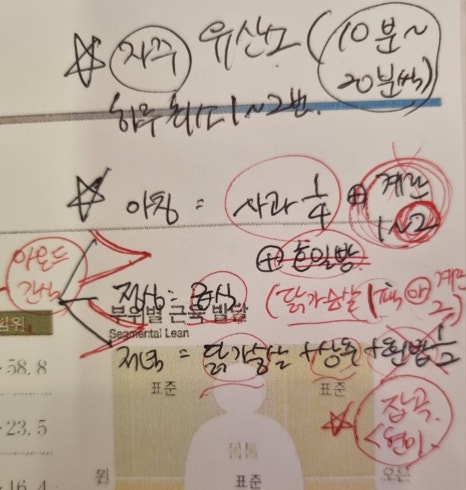 ☆ 자주 유산소 (10분~
20분씩)
하루 최소 1~2번.
☆ 아침 = 사과 1/4 ⊕ 계란
1~2
⊕ 호밀빵
아몬드
간식
점심 = 급식 (닭가슴살 1팩 or 계란
2)
부위별 근육 발달
Segmental Lean
범위
저녁 = 닭가슴살 + 상추 + 현밥 1/2
58.8
표준 표준
☆ 잡곡.
<현미.
23.5
몸통
16.4
표준